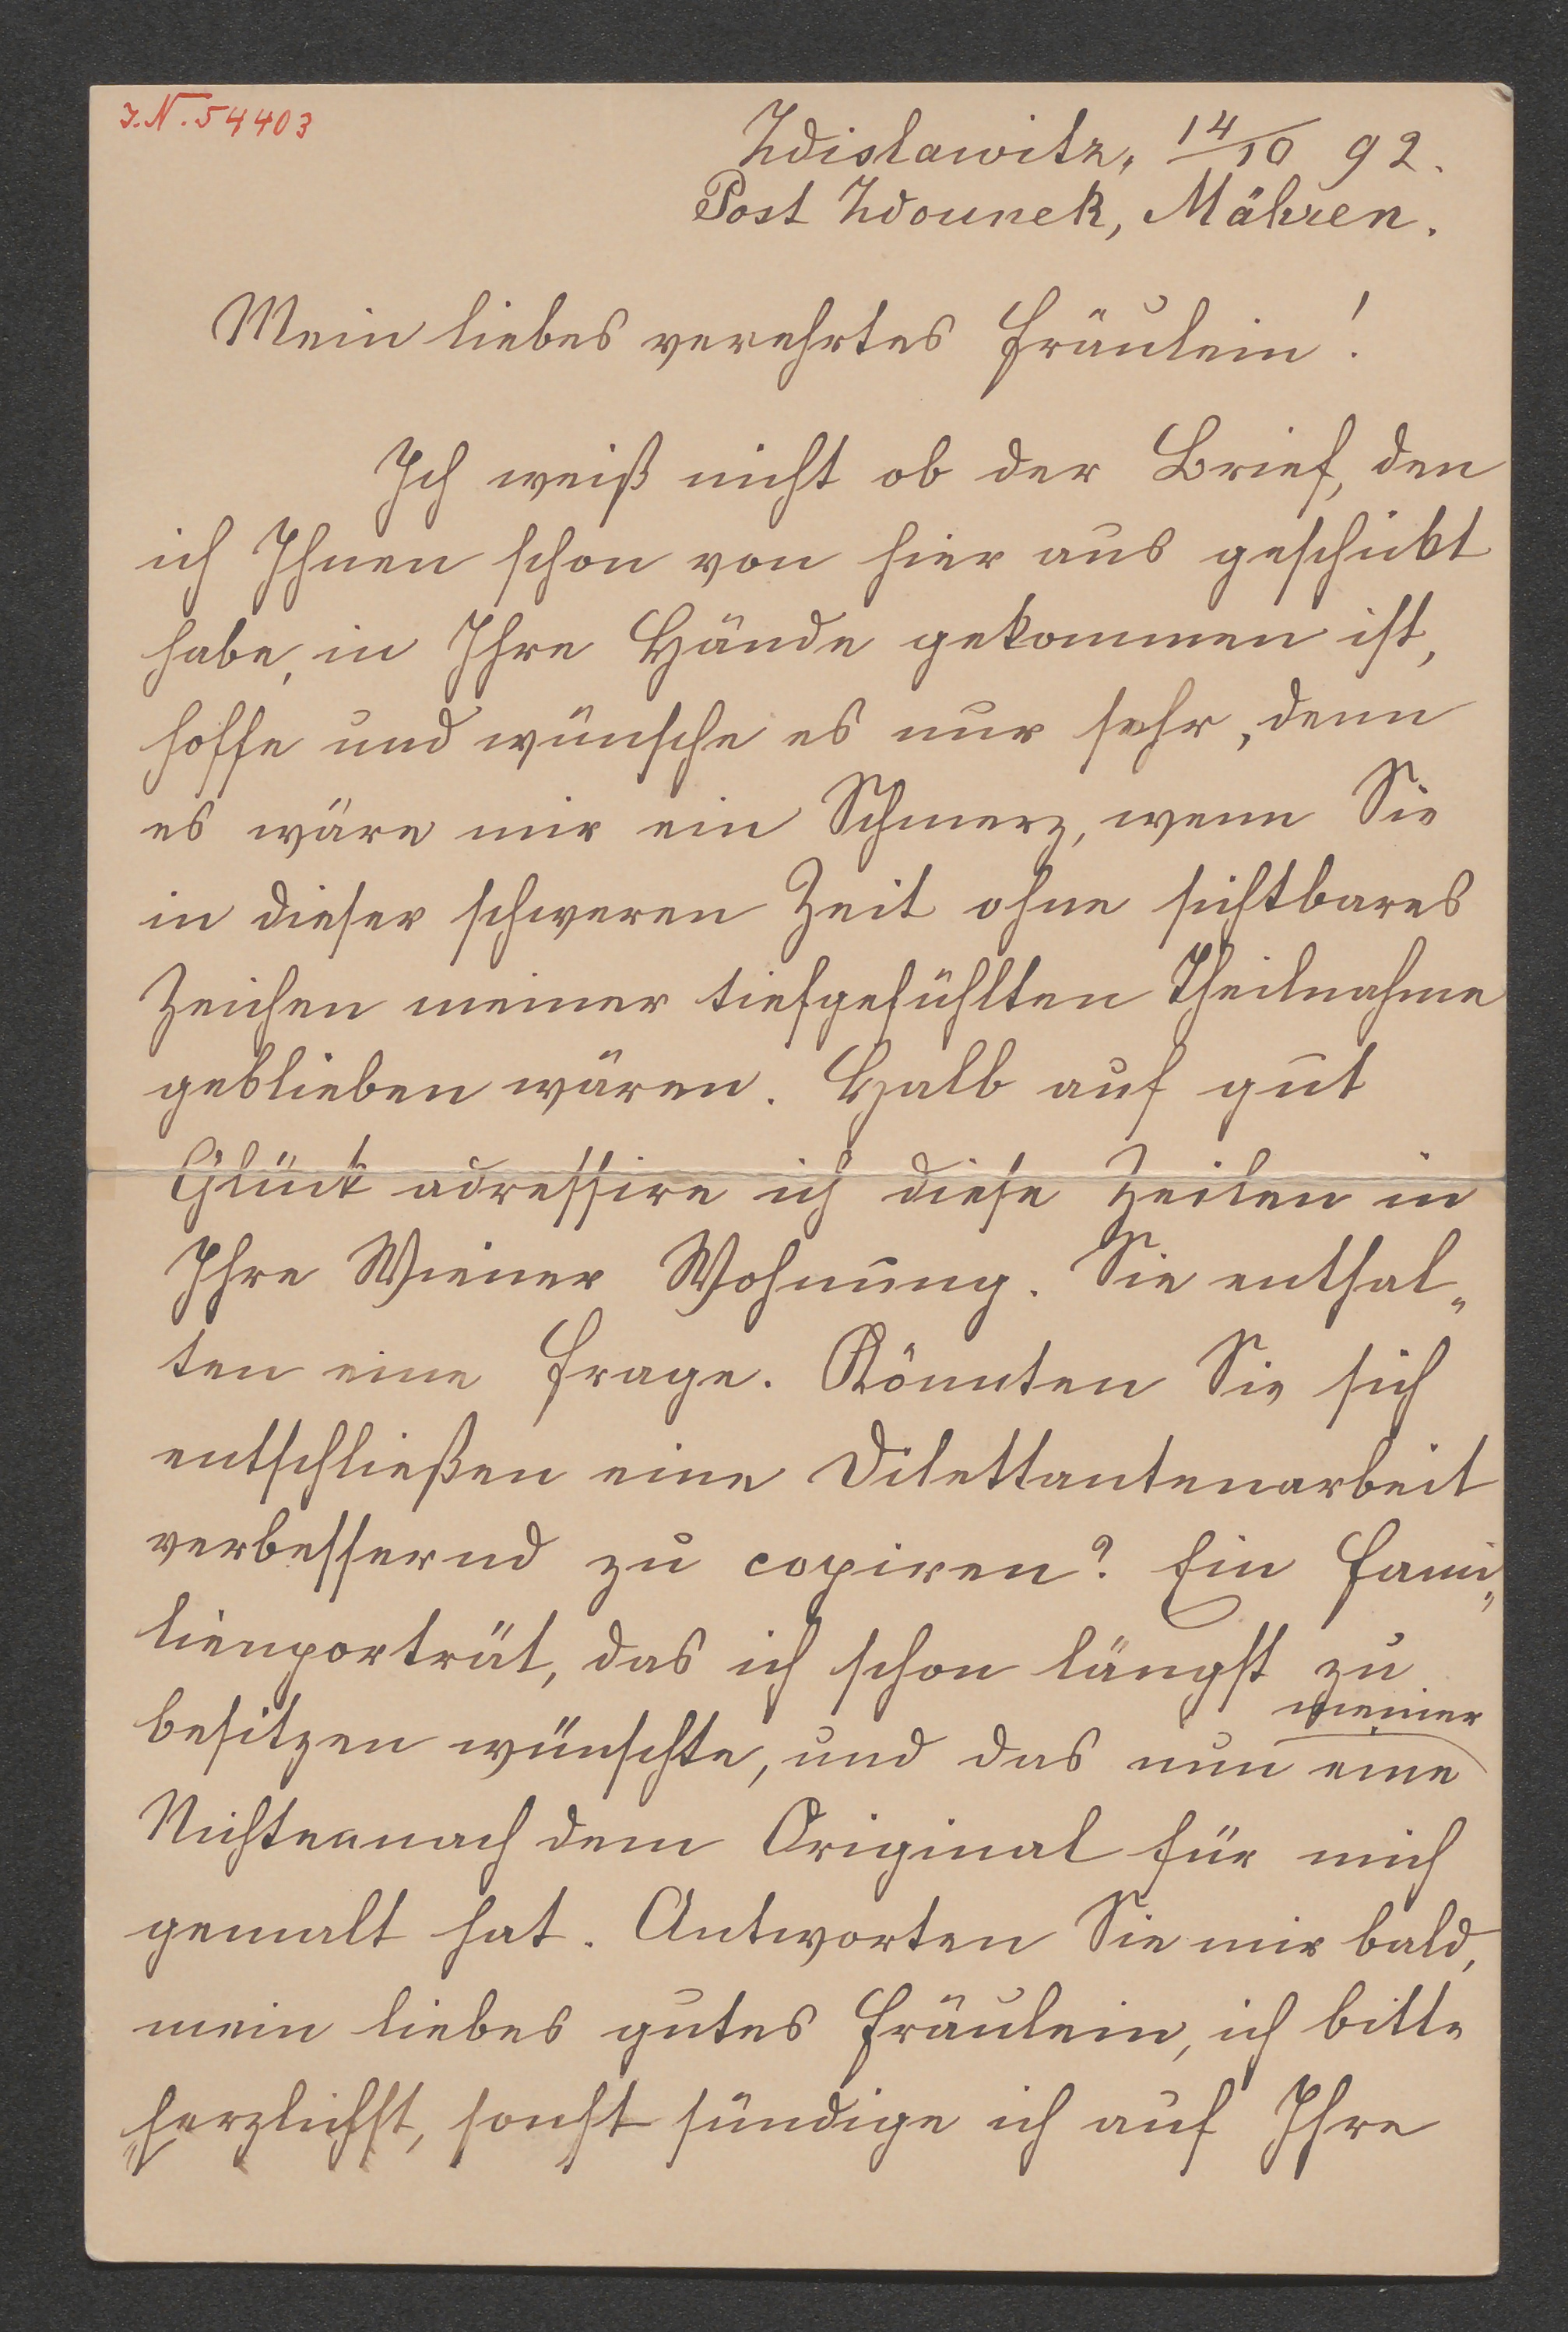 I.N. 54403
Zdislawitz, 14/10 92.
Post Zdounek, Mähren.
Mein liebes verehrtes Fräulein!
Ich weiß nicht ob der Brief, den
ich Ihnen schon von hier aus geschickt
habe, in Ihre Hände gekommen ist,
hoffe und wünsche es nur sehr, denn
es wäre mir ein Schmerz, wenn Sie
in dieser schweren Zeit ohne sichtbares
Zeichen meiner tiefgefühlten Theilnahme
geblieben wären. Halb auf gut
Glück adressire ich diese Zeilen in
Ihre Wiener Wohnung. Sie enthal„
ten eine Frage. Könnten Sie sich
entschließen eine Dilettantenarbeit
verbessernd zu copiren? Ein Fami„
lienporträt, das ich schon längst zu
meiner
besitzen wünschte, und das nun eine
Nichten nach dem Original für mich
gemalt hat. Antworten Sie mir bald,
mein liebes gutes Fräulein, ich bitte
herzlichst, sonst sündige ich auf Ihre